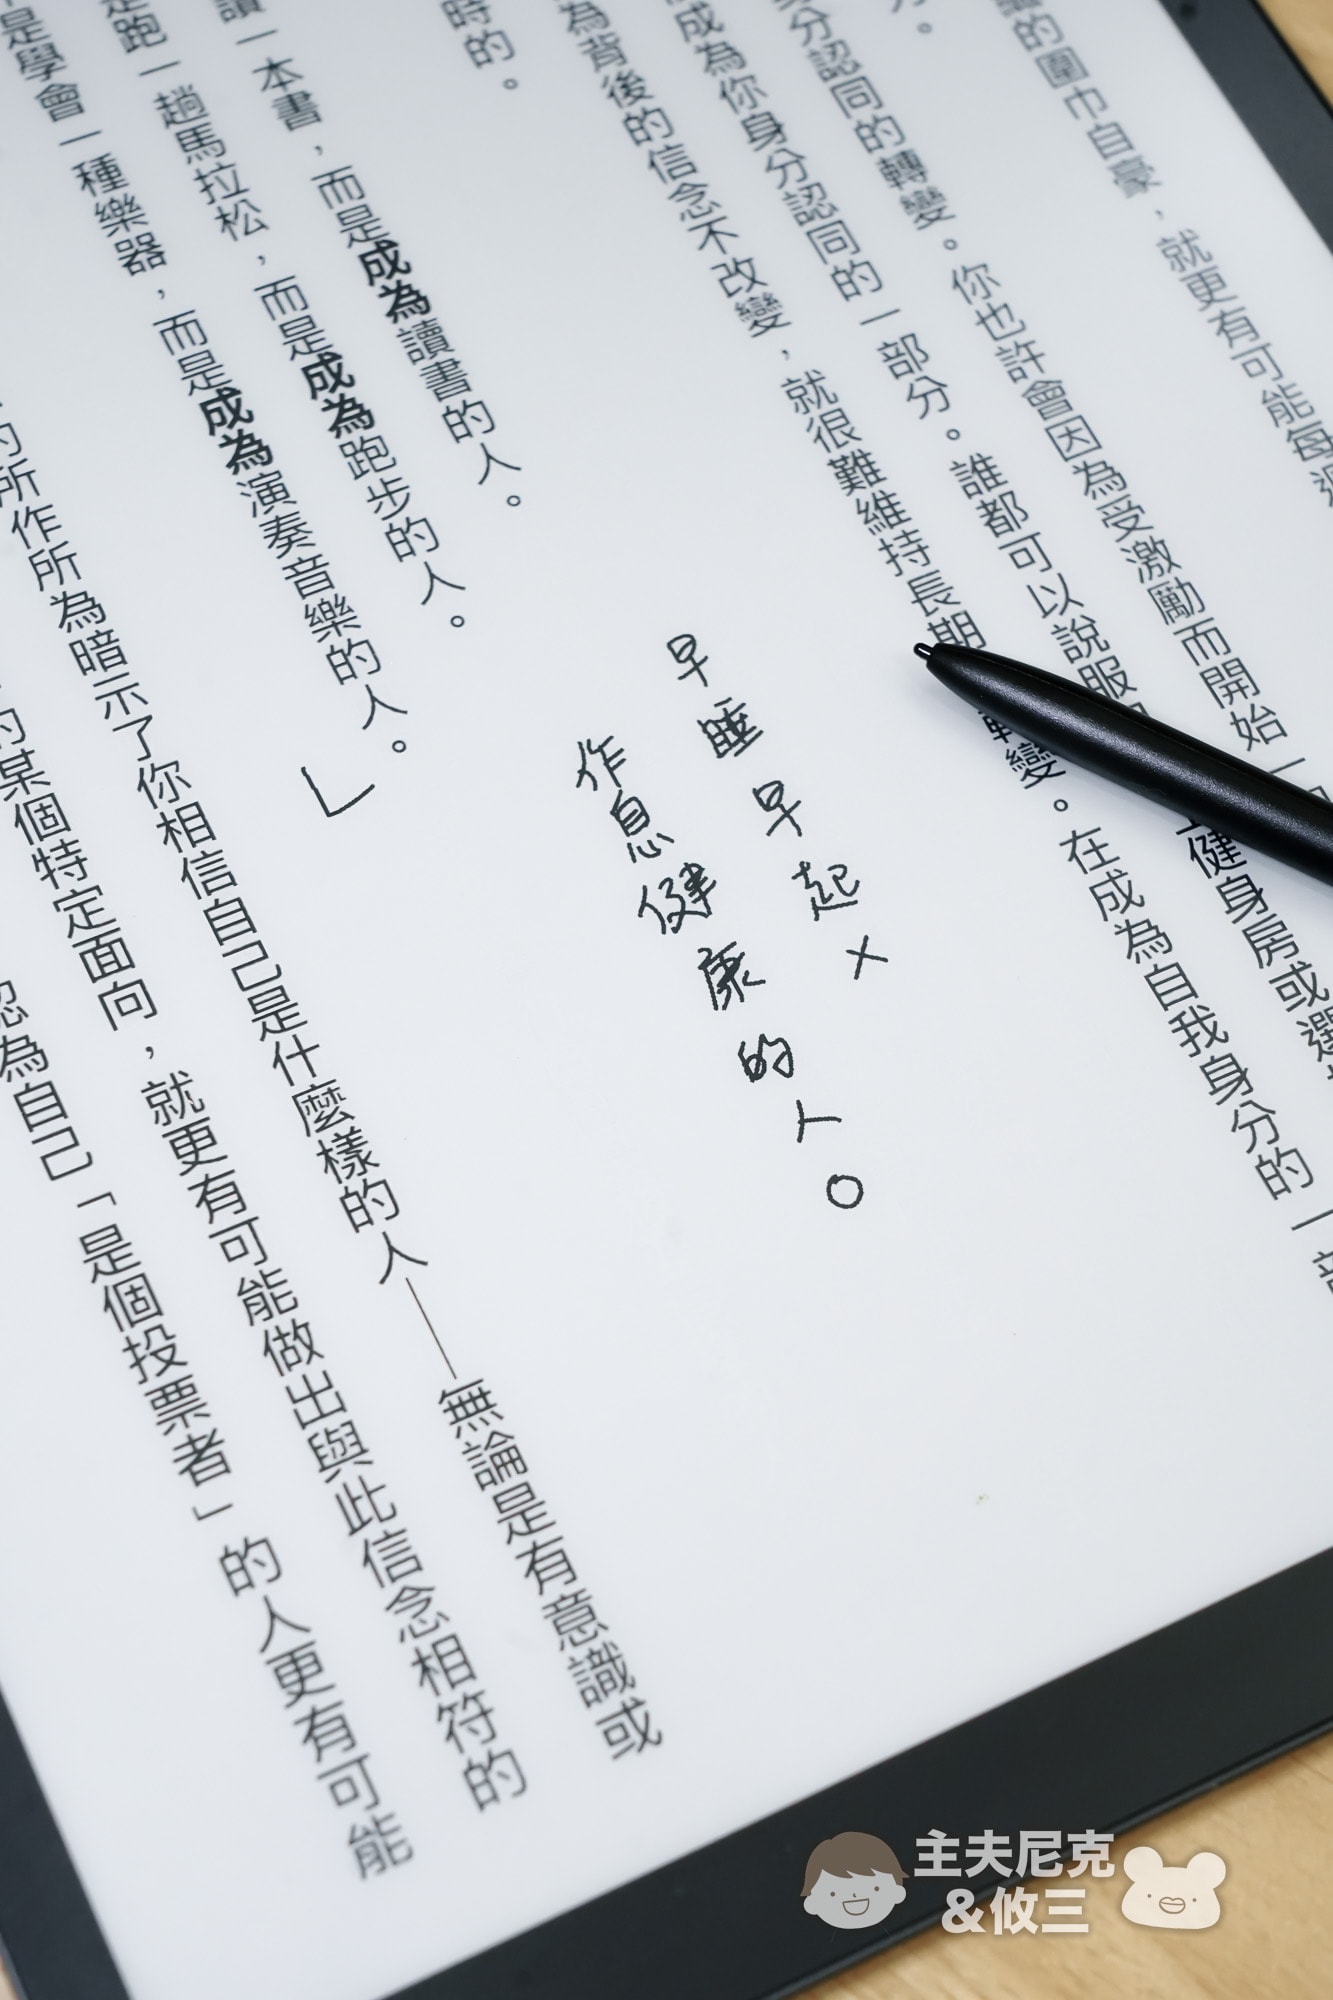 的圍巾自豪，就更有可能每週
分認同的轉變。你也許會因為受激勵而開始一
成為你身分認同的一部分。誰都可以說服健身房或選
為背後的信念不改變，就很難維持長期轉變。在成為自我身分的一部
時的。
早睡早起×
作息健康的人○
讀一本書，而是成為讀書的人。
是跑一趟馬拉松，而是成為跑步的人。
是學會一種樂器，而是成為演奏音樂的人。
的所作所為暗示了你相信自己是什麼樣的人——無論是有意識或
的某個特定面向，就更有可能做出與此信念相符的
認為自己「是個投票者」的人更有可能
主夫尼克
&攸三